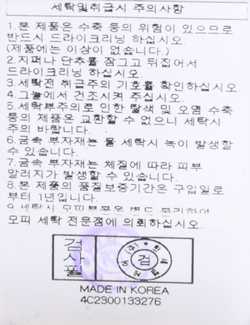 세탁및취급시 주의사항
1.본 제품은 수축 등의 위험이 있으므로
반드시 드라이크리닝 하십시오.
(제품에는 이상이 없습니다.)
2.지퍼나 단추를 잠그고 뒤집어서
드라이크리닝 하십시오.
3.세탁전 취급주의 기호를 확인하십시오.
4.그늘에서 건조시켜 주십시오.
5.세탁부주의로 인한 탈색 및 오염 수축
등의 제품은 교환할 수 없으니 세탁시
주의 바랍니다.
6.금속 부자재는 물 세탁시 녹이 발생할
수 있습니다.
7.금속 부자재는 체질에 따라 피부
알러지가 발생할 수 있습니다.
8.본 제품의 품질보증기간은 구입일로
부터 1년입니다.
9.세탁시
모피 세탁 전문점에 의뢰하십시오.
검사필
검
MADE IN KOREA
4C2300133276